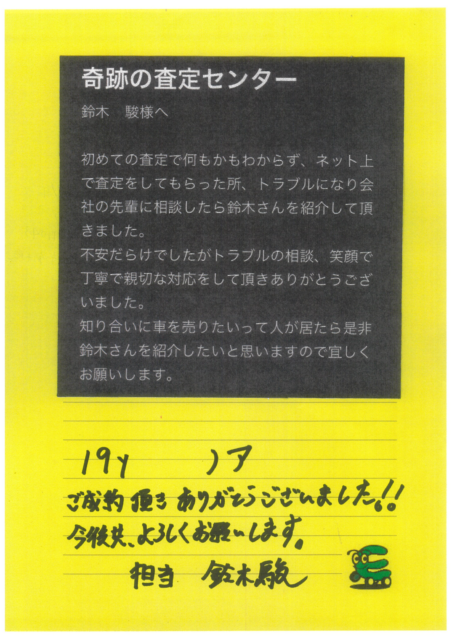 奇跡の査定センター
鈴木　駿様へ
初めての査定で何もかもわからず、ネット上
で査定をしてもらった所、トラブルになり会
社の先輩に相談したら鈴木さんを紹介して頂
きました。
不安だらけでしたがトラブルの相談、笑顔で
丁寧で親切な対応をして頂きありがとうござ
いました。
知り合いに車を売りたいって人が居たら是非
鈴木さんを紹介したいと思いますので宜しく
お願いします。
19y　　　ア
ご成約頂きありがとうございました!!
今後共、よろしくお願いします。
担当　鈴木駿